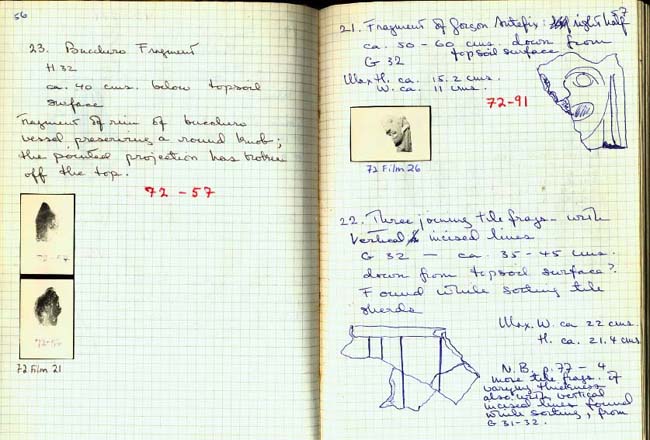 56
23. Bucchero Fragment
H 32
ca. 40 cms. below topsoil
surface
Fragment of rim of bucchero
vessel preserving a round knob;
the pointed projection has broken
off the top.
72-57
72-57
72-57
72 Film 21
57
21. Fragment of Gorgon Antefix: right half
ca. 50-60 cms. down from
topsoil surface
G 32
Max H. ca. 15.2 cms.
W. ca. 11 cms.
72-91
72 Film 26
22. Three joining tile frags. with
vertical incised lines
G 32 — ca. 35-45 cms.
down from topsoil surface?
Found while sorting tile
sherds
Max. W. ca 22 cms.
H. ca. 21.4 cms.
N.B. p. 77 - 4
more tile frags. of
varying thickness
also with vertical
incised lines found
while sorting, from
G 31-32.